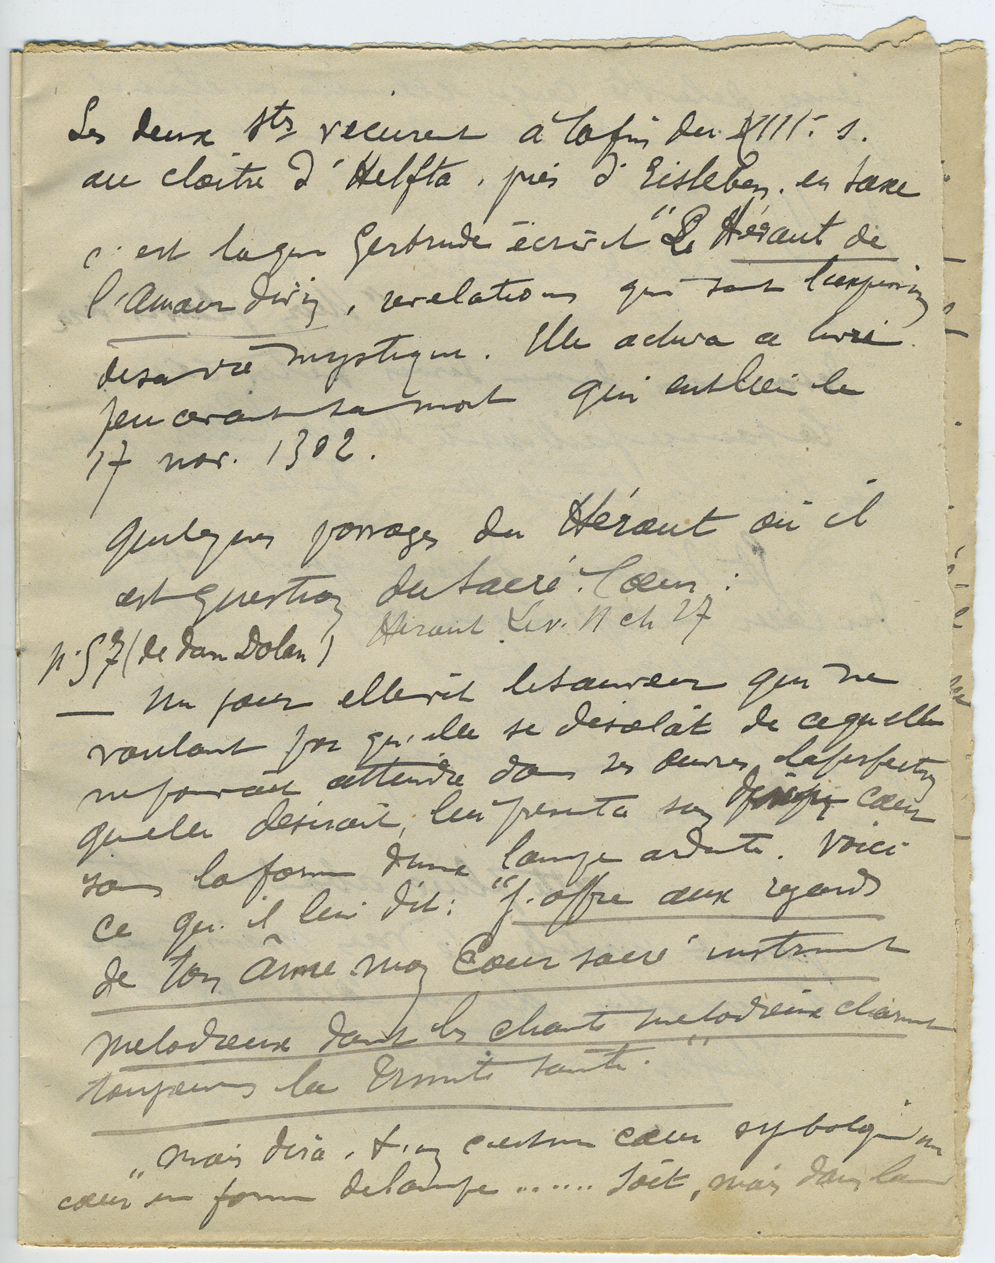 Les deux Stes vecurent à la fin du XIIIe s.
au cloître d'Helfta, près d'Eisleben, en Saxe
c'est la que Gertrude écrivit "Le Héraut de
l'Amour divin, revelations qui sont l'expression
de sa vie mystique. Elle acheva ce livre
peu avant sa mort qui eut lieu le
17 nov. 1302.
Quelques passages du Héraut où il
est question du Sacré-Coeur :
Héraut Liv. II ch 27
p. 57 (de dom Dolan)
— Un jour elle vit le Sauveur qui ne
voulant pas qu'elle se désolât de ce qu'elle
ne pouvait atteindre dans ses oeuvres la perfection
qu'elle désirait, lui présenta son divin coeur
sous la forme d'une lampe ardente. Voici
ce qu'il lui dit : "J'offre aux regards
de ton âme mon Coeur sacré instrument
melodieux dont les chants melodieux charment
toujours la Trinité sainte"
"mais dira-t-on c'est un coeur symbolique un
coeur en forme de lampe ...... Soit, mais dans la